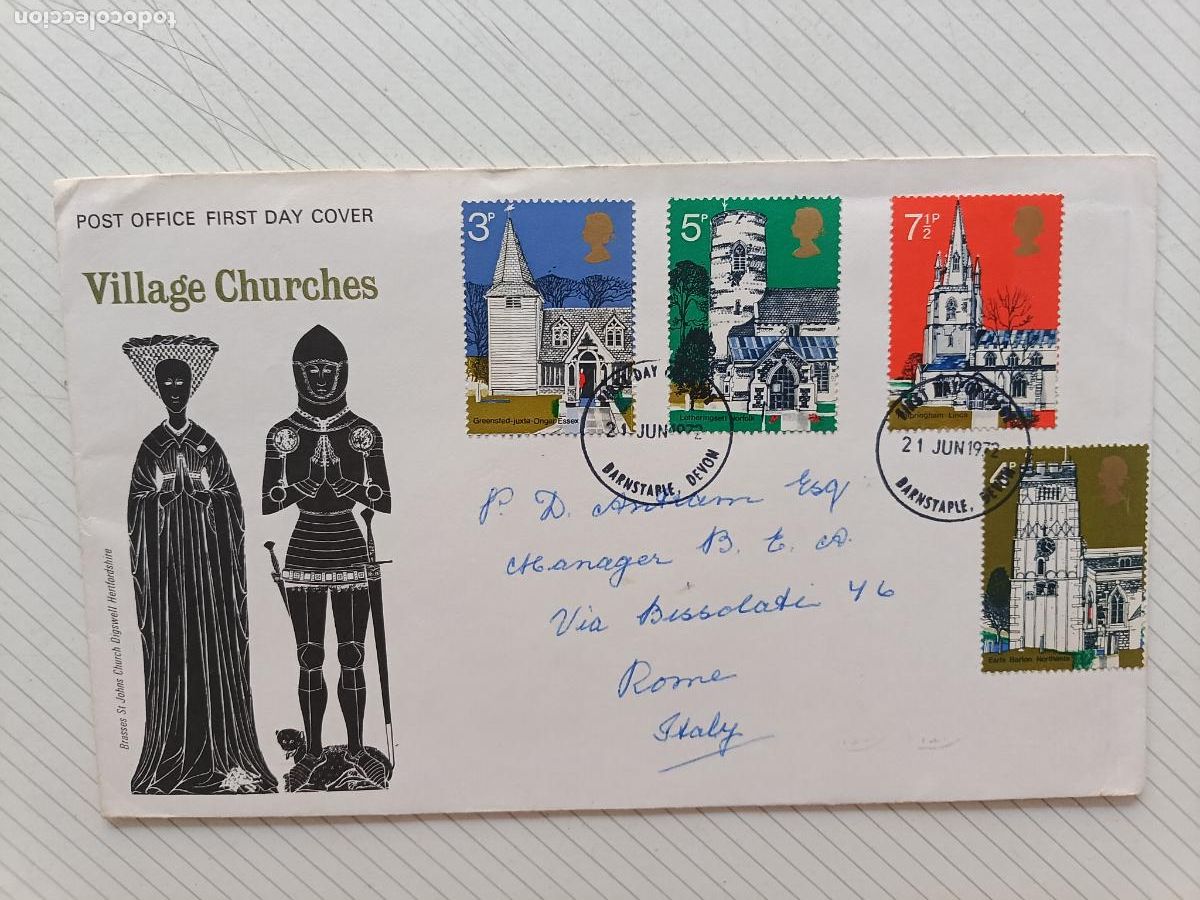 todocoleccion
POST OFFICE FIRST DAY COVER
Village Churches
3P
5P
7½P
Greensted-juxta-Ongar Essex
Letheringsett Norfolk
Helpringham Lincs
FIRST DAY OF
21 JUN 1972
BARNSTAPLE, DEVON
FIRST DAY OF ISSUE
21 JUN 1972
BARNSTAPLE, DEVON
P
Earls Barton Northants
P. D. Esq
Manager B. E. A.
Via Bissolati 46
Rome
Italy
Brasses St Johns Church Digswell Hertfordshire